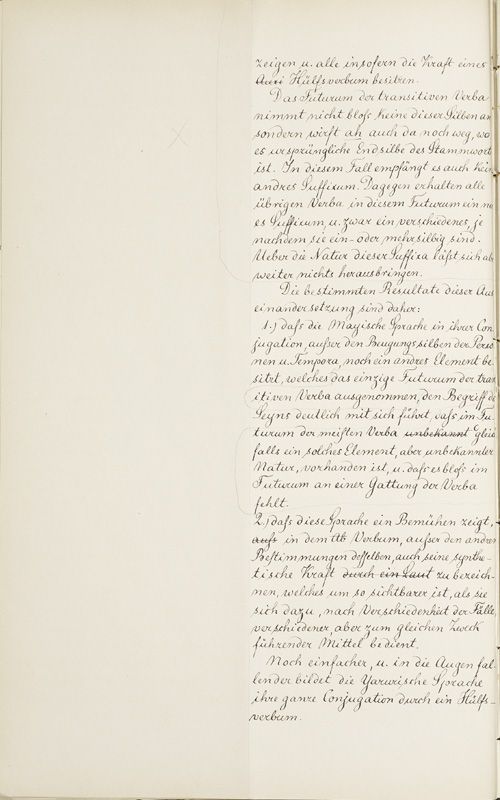 zeigen u. alle insofern die Kraft eines
Hülfsverbum besitzen.
Das Futurum der transitiven Verba
nimmt nicht bloſs keine dieser Silben an
sondern wirft ah auch da noch weg, wo
es ursprüngliche Endsilbe des Stammwort
ist. In diesem Fall empfängt es auch kein
andres Suffixum. Dagegen erhalten alle
übrigen Verba in diesem Futurum ein no
es Suffixum, u. zwar ein verschiedenes, je
nachdem sie ein- oder mehrsilbig sind.
Ueber die Natur dieser Suffixa läſst sich ab
weiter nichts herausbringen.
Die bestimmten Resultate dieser Aus
einandersetzung sind daher:
1.) daſs die Mayische Sprache in ihrer Con
jugation, auſser den Beugungssilben der Perso
nen u. Tempora, noch ein andres Element be
sitzt, welches das einzige Futurum der tran
sitiven Verba ausgenommen, den Begriff de
Seyns deutlich mit sich führt, daſs im Fu
turum der meisten Verba unbekannt gleich
falls ein solches Element, aber unbekannter
Natur, vorhanden ist, u. daſs es bloſs im
Futurum an einer Gattung der Verba
fehlt.
2.) daſs diese Sprache ein Bemühen zeigt,
aufs in dem Verbum, auſser den andren
Bestimmungen desselben, auch seine synthe-
tische Kraft durch ein Laut zu bezeich-
nen, welches um so sichtbarer ist, als sie
sich dazu, nach Verschiedenheit der Fälle,
verschiedener, aber zum gleichen Zweck
führender Mittel bedient.
Noch einfacher, u. in die Augen fal
lender bildet die Yarurische Sprache
ihre ganze Conjugation durch ein Hülfs-
verbum.